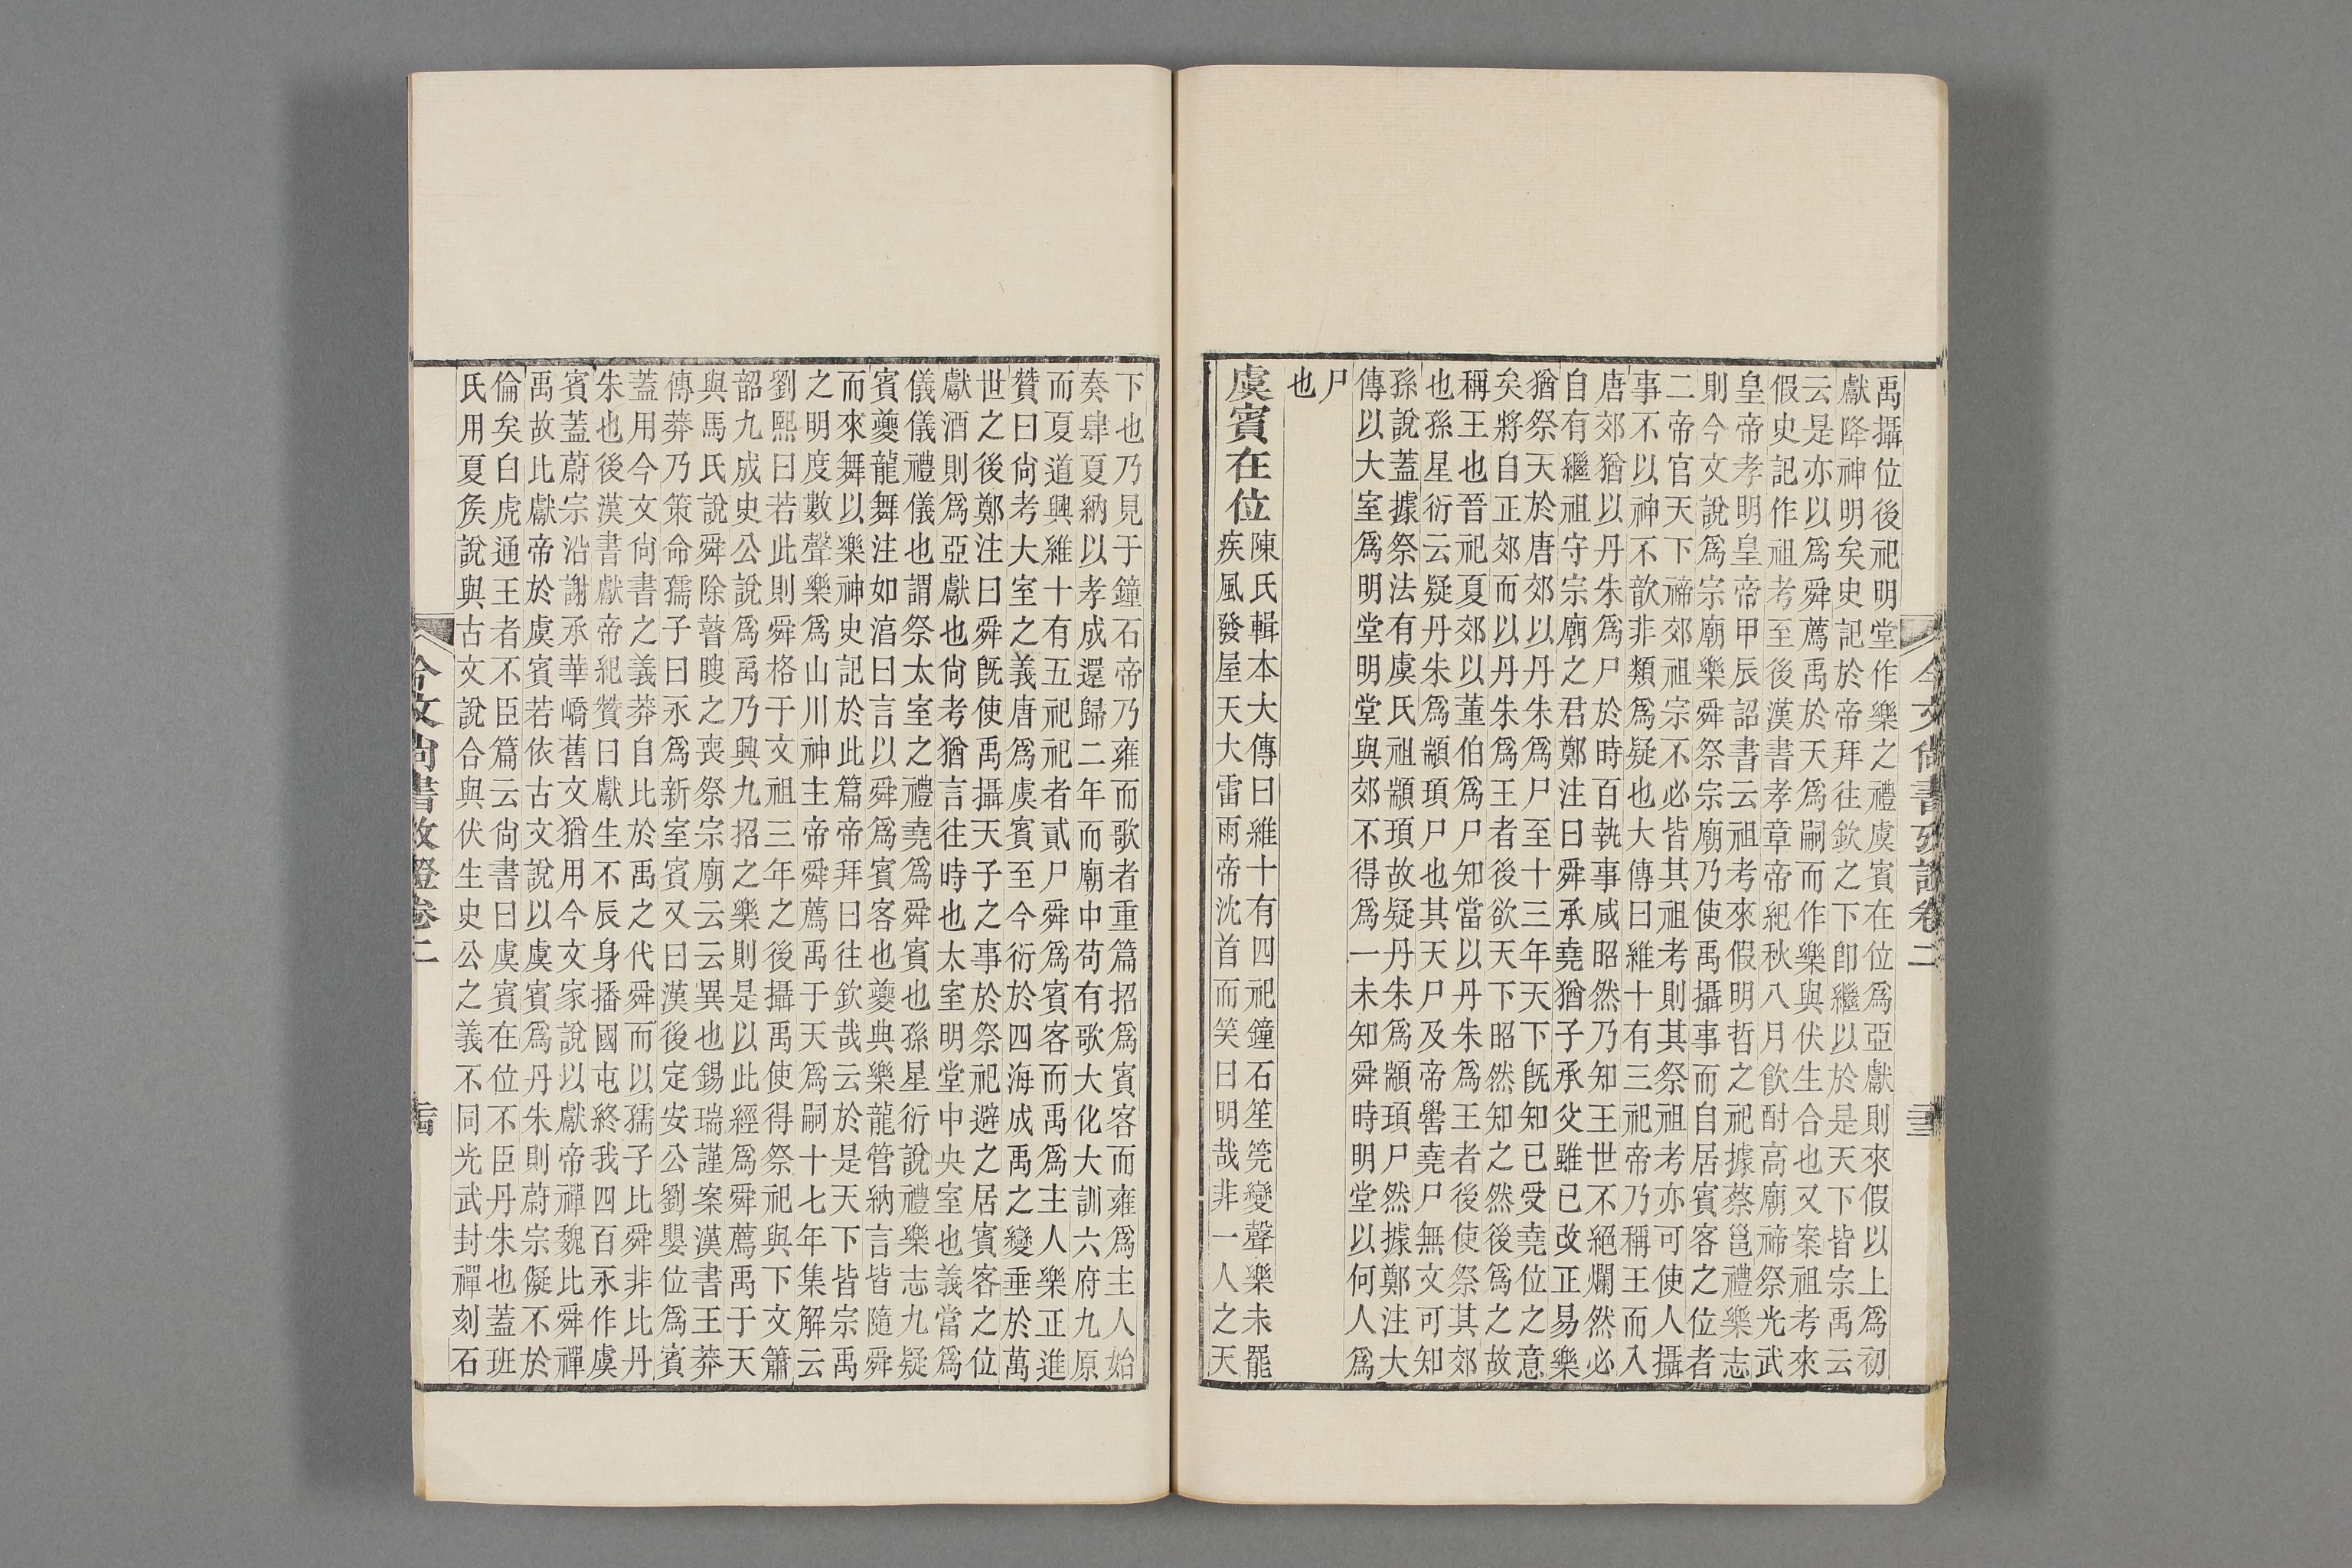 禹攝位後祀明堂作樂之禮虞賓在位爲亞獻則來假以上爲初
獻降神明矣史記於帝拜往欽之下卽繼以於是天下皆宗禹云
云是亦以爲舜薦禹於天爲嗣而作樂與伏生合也又案祖考來
假史記作祖考至後漢書孝章帝紀秋八月飮酎高廟禘祭光武
皇帝孝明皇帝甲辰詔書云祖考來假明哲之祀據蔡邕禮樂志
則今文說爲宗廟樂舜祭宗廟乃使禹攝事而自居賓客之位者
二帝官天下禘郊祖宗不必皆其祖考則其祭祖考亦可使人攝
事不以神不歆非類爲疑也大傳曰維十有三祀帝乃稱王而入
唐郊猶以丹朱爲尸於時百執事咸昭然乃知王世不絕爛然必
自有繼祖守宗廟之君鄭注曰舜承堯猶子承父雖已改正易樂
猶祭天於唐郊以丹朱爲尸至十三年天下旣知已受堯位之意
矣將自正郊而以丹朱爲王者後欲天下昭然知之然後爲之故
稱王也晉祀夏郊以董伯爲尸知當以丹朱爲王者後使祭其郊
也孫星衍云疑丹朱爲顓頊尸也其天尸及帝嚳堯尸無文可知
孫說蓋據祭法有虞氏祖顓頊故疑丹朱爲顓頊尸然據鄭注大
傳以大室爲明堂明堂與郊不得爲一未知舜時明堂以何人爲
尸
也
虞賓在位
陳氏輯本大傳曰維十有四祀鐘石笙筦變聲樂未罷
疾風發屋天大雷雨帝沈首而笑曰明哉非一人之天
今文尚書攷證卷二
下也乃見于鐘石帝乃雍而歌者重篇招爲賓客而雍爲主人始
奏肆夏納以孝成還歸二年而廟中苟有歌大化大訓六府九原
而夏道興維十有五祀祀者貳尸舜爲賓客而禹爲主人樂正進
贊曰尙考大室之義唐爲虞賓至今衍於四海成禹之變垂於萬
世之後鄭注曰舜旣使禹攝天子之事於祭祀避之居賓客之位
獻酒則爲亞獻也尙考猶言往時也太室明堂中央室也義當爲
儀儀禮儀也謂祭太室之禮堯爲舜賓也孫星衍說禮樂志九疑
賓夔龍舞注如淊曰言以舜爲賓客也夔典樂龍管納言皆隨舜
而來舞以樂神史記於此篇帝拜曰往欽哉云於是天下皆宗禹
之明度數聲樂爲山川神主帝舜薦禹于天爲嗣十七年集解云
劉熙曰若此則舜格于文祖三年之後攝禹使得祭祀與下文簫
韶九成史公說爲禹乃興九招之樂則是以此經爲舜薦禹于天
與馬氏說舜除瞽瞍之喪祭宗廟云云異也錫瑞謹案漢書王莽
傳莽乃策命孺子曰永爲新室賓又曰漢後定安公劉嬰位爲賓
蓋用今文尙書之義莽自比於禹之代舜而以孺子比舜非比丹
朱也後漢書獻帝紀贊曰獻生不辰身播國屯終我四百永作虞
賓蓋蔚宗沿謝承華嶠舊文猶用今文家說以獻帝禪魏比舜禪
禹故比獻帝於虞賓若依古文說以虞賓爲丹朱則蔚宗儗不於
倫矣白虎通王者不臣篇云尙書曰虞賓在位不臣丹朱也蓋班
氏用夏侯說與古文說合與伏生史公之義不同光武封禪刻石
今文尚書攷證卷二